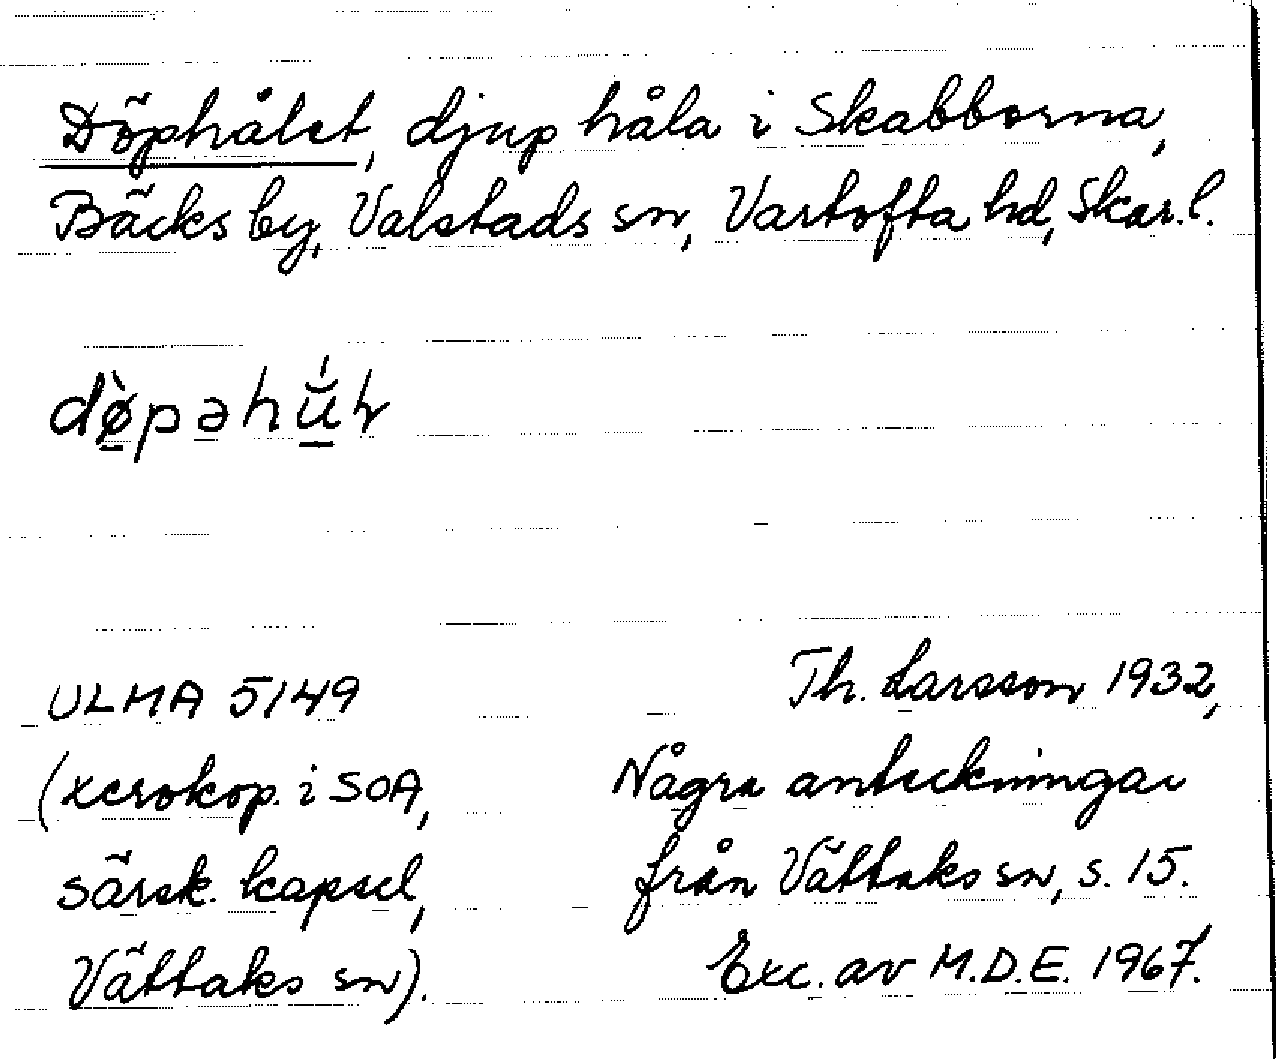 Döphålet, djup håla i Skabborna,
Bäcks by, Valstads sn, Vartofta hd, Skar. l.
ULMA 5149
(xerokop. i SOA,
särsk. kapsel,
Vättaks sn).
Th. Larsson 1932,
Några anteckningar
från Vättaks sn, s. 15.
Exc. av M.D.E. 1967.